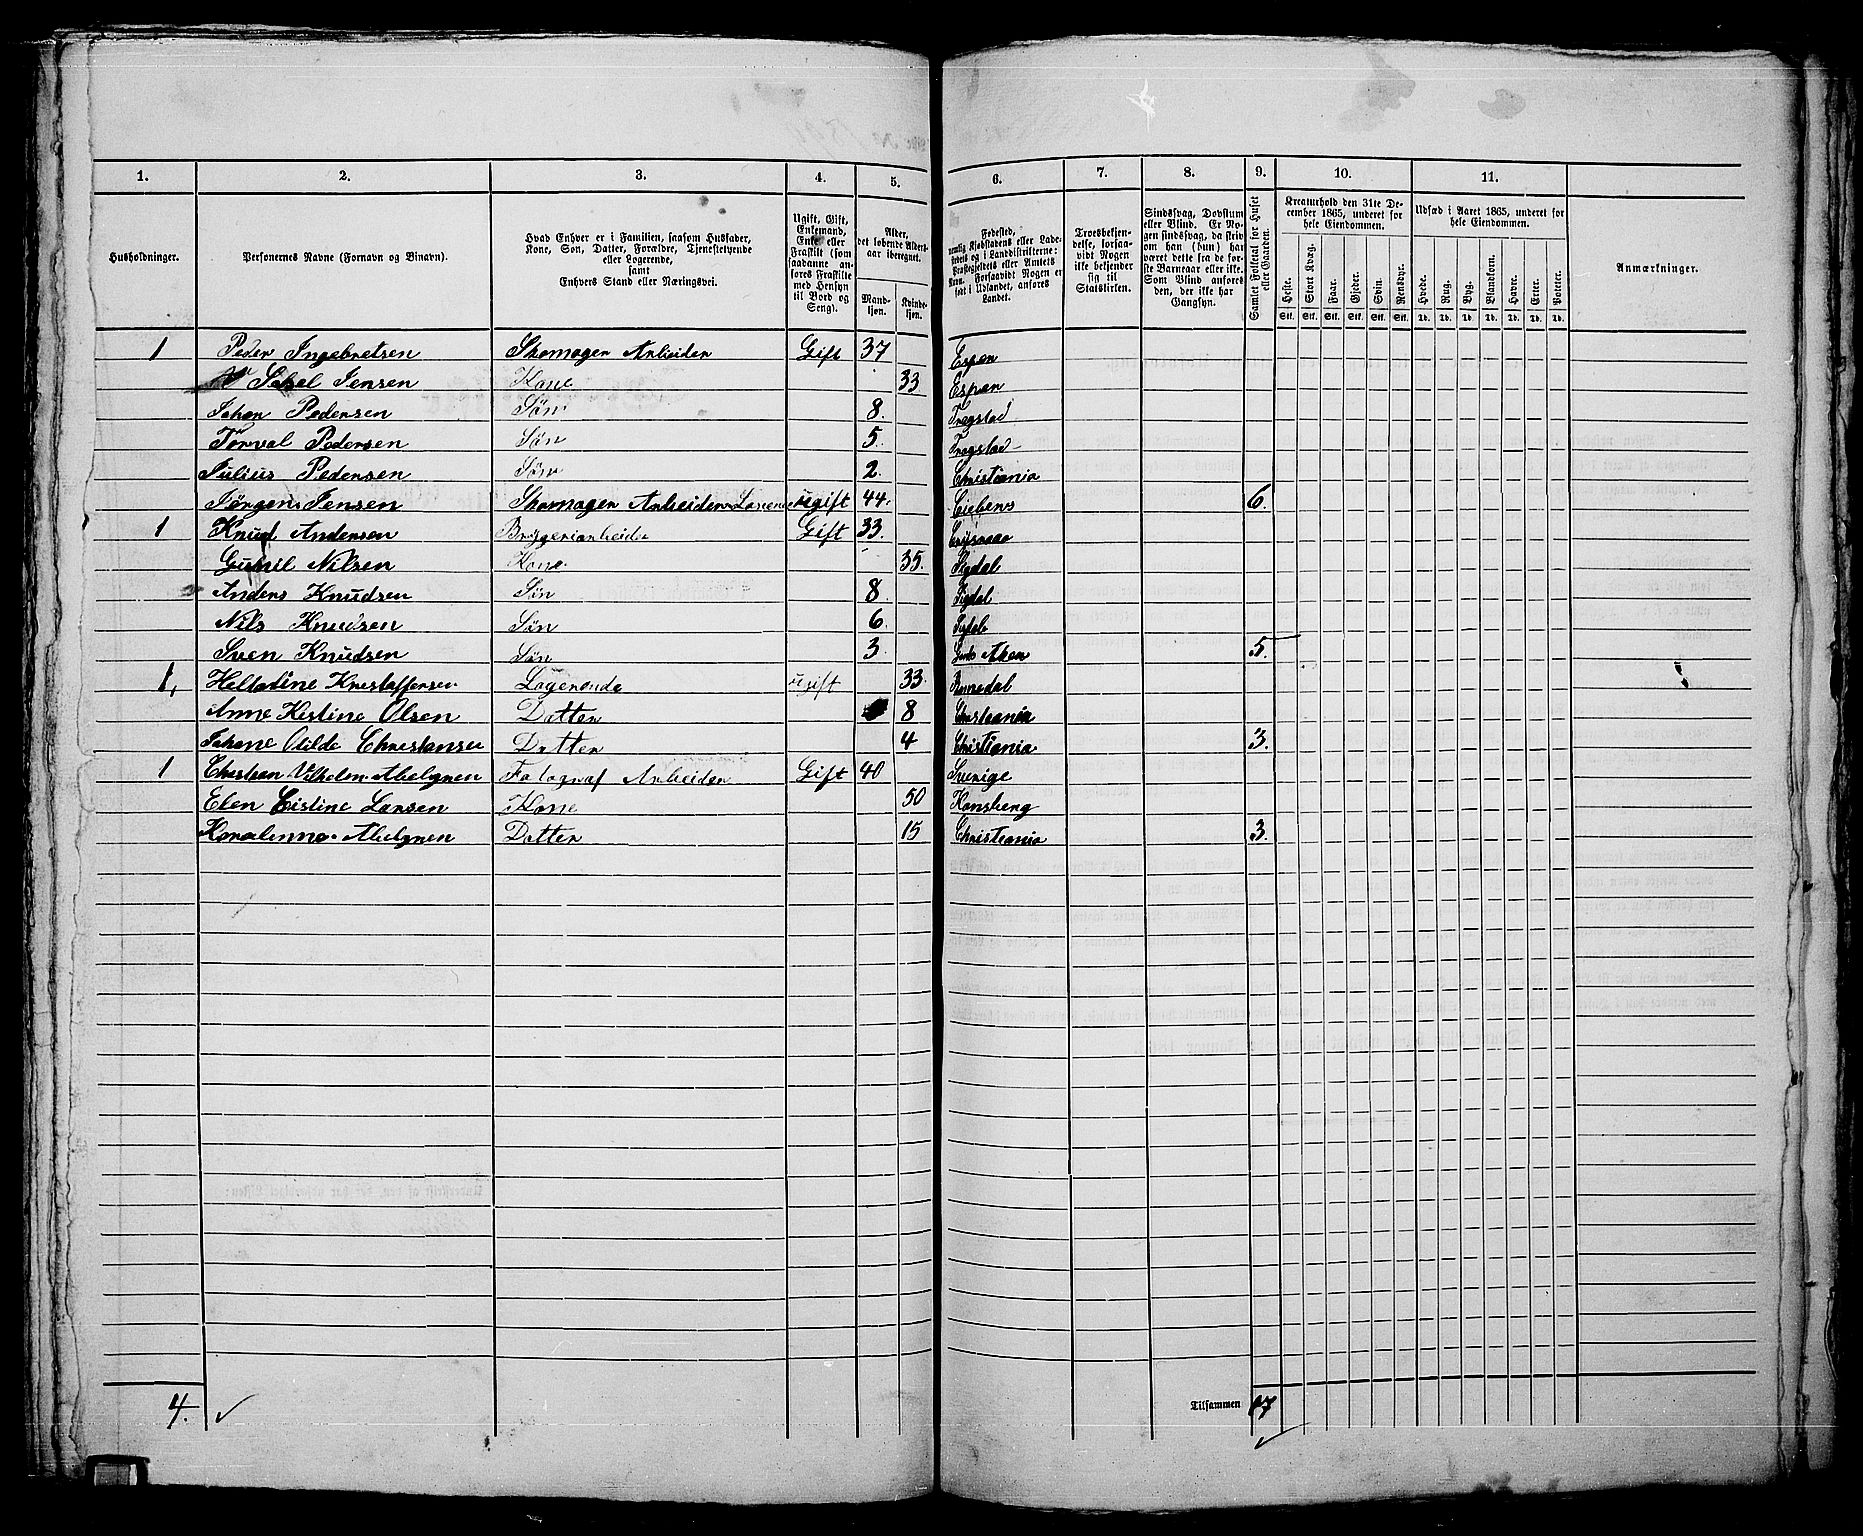 1. 2. 3. 4. 5. 6. 7. 8. 9. 10. 11.
Husholdninger.
Personernes Navne (Fornavn og Binavn).
Hvad Enhver er i Familien, saasom Husfader,
Kone, Søn, Datter, Forældre, Tjenestetyende
eller Logerende,
samt
Enhvers Stand eller Næringsvei.
Ugift, Gift,
Enkemand,
Enke eller
Fraskilt (som
saadanne an-
føres Fraskilte
med Hensyn
til Bord og
Seng).
Alder,
det løbende Alders-
aar iberegnet.
Mand-
kjøn.
Kvinde-
kjøn.
Fødested,
nemlig Kjøbstadens eller Lade-
stedets eller i Landdistrikterne:
Præstegjeldets eller Amtets
Navn. Forsaavidt Nogen er
født i Udlandet, anføres
Landet.
Troesbekjen-
delse, forsaa-
vidt Nogen
ikke bekjender
sig til
Statskirken.
Sindssvag, Døvstum
eller Blind. Er No-
gen sindssvag, da skriv
om han (hun) har
været dette fra de før-
ste Barneaar eller ikke.
Som Blind anføres
den, der ikke har
Gangsyn.
Samlet Folketal for Huset
eller Gaarden.
Kreaturhold den 31te De-
cember 1865, underet for
hele Eiendommen.
Heste. Stort Kvæg. Faar. Gjeder. Svin. Rensdyr.
Stk. Stk. Stk. Stk. Stk. Stk.
Udsæd i Aaret 1865, underet for
hele Eiendommen.
Hvede. Rug. Byg. Blandkorn. Havre. Erter. Poteter.
Td. Td. Td. Td. Td. Td. Td.
Anmærkninger.
1 Peder Ingebretsen Skomager Arbeider Gift 37 Espen
Sesel Jensen Kone 33 Espen
Johan Pedersen Søn 8. Trøgstad
Torval Pedersen Søn 5. Trøgstad
Julius Pedersen Søn 2. Christiania
Jørgen Jensen Skomager Arbeider ugift 44. 6.
1 Knud Andersen Bryggeriarbeider Gift 33.
Gunil Nilsen Kone 35. Sigdal
Anders Knudsen Søn 8. Sigdal
Nils Knudsen Søn 6. Sigdal
Sven Knudsen Søn 3. Aker 5.
1, Krestoffersen Logerende ugift 33. Romedal
Anne Kistine Olsen Datter 8 Christiania
Johane Otilde Christansen Datter 4 Christiania 3.
1 Christian Vilhelm Fotograf Arbeider Gift 40 Sverige
Elen Cistine Larsen Kone 50 Konsberg
Datter 15 Christiania 3.
4. Tilsammen 17